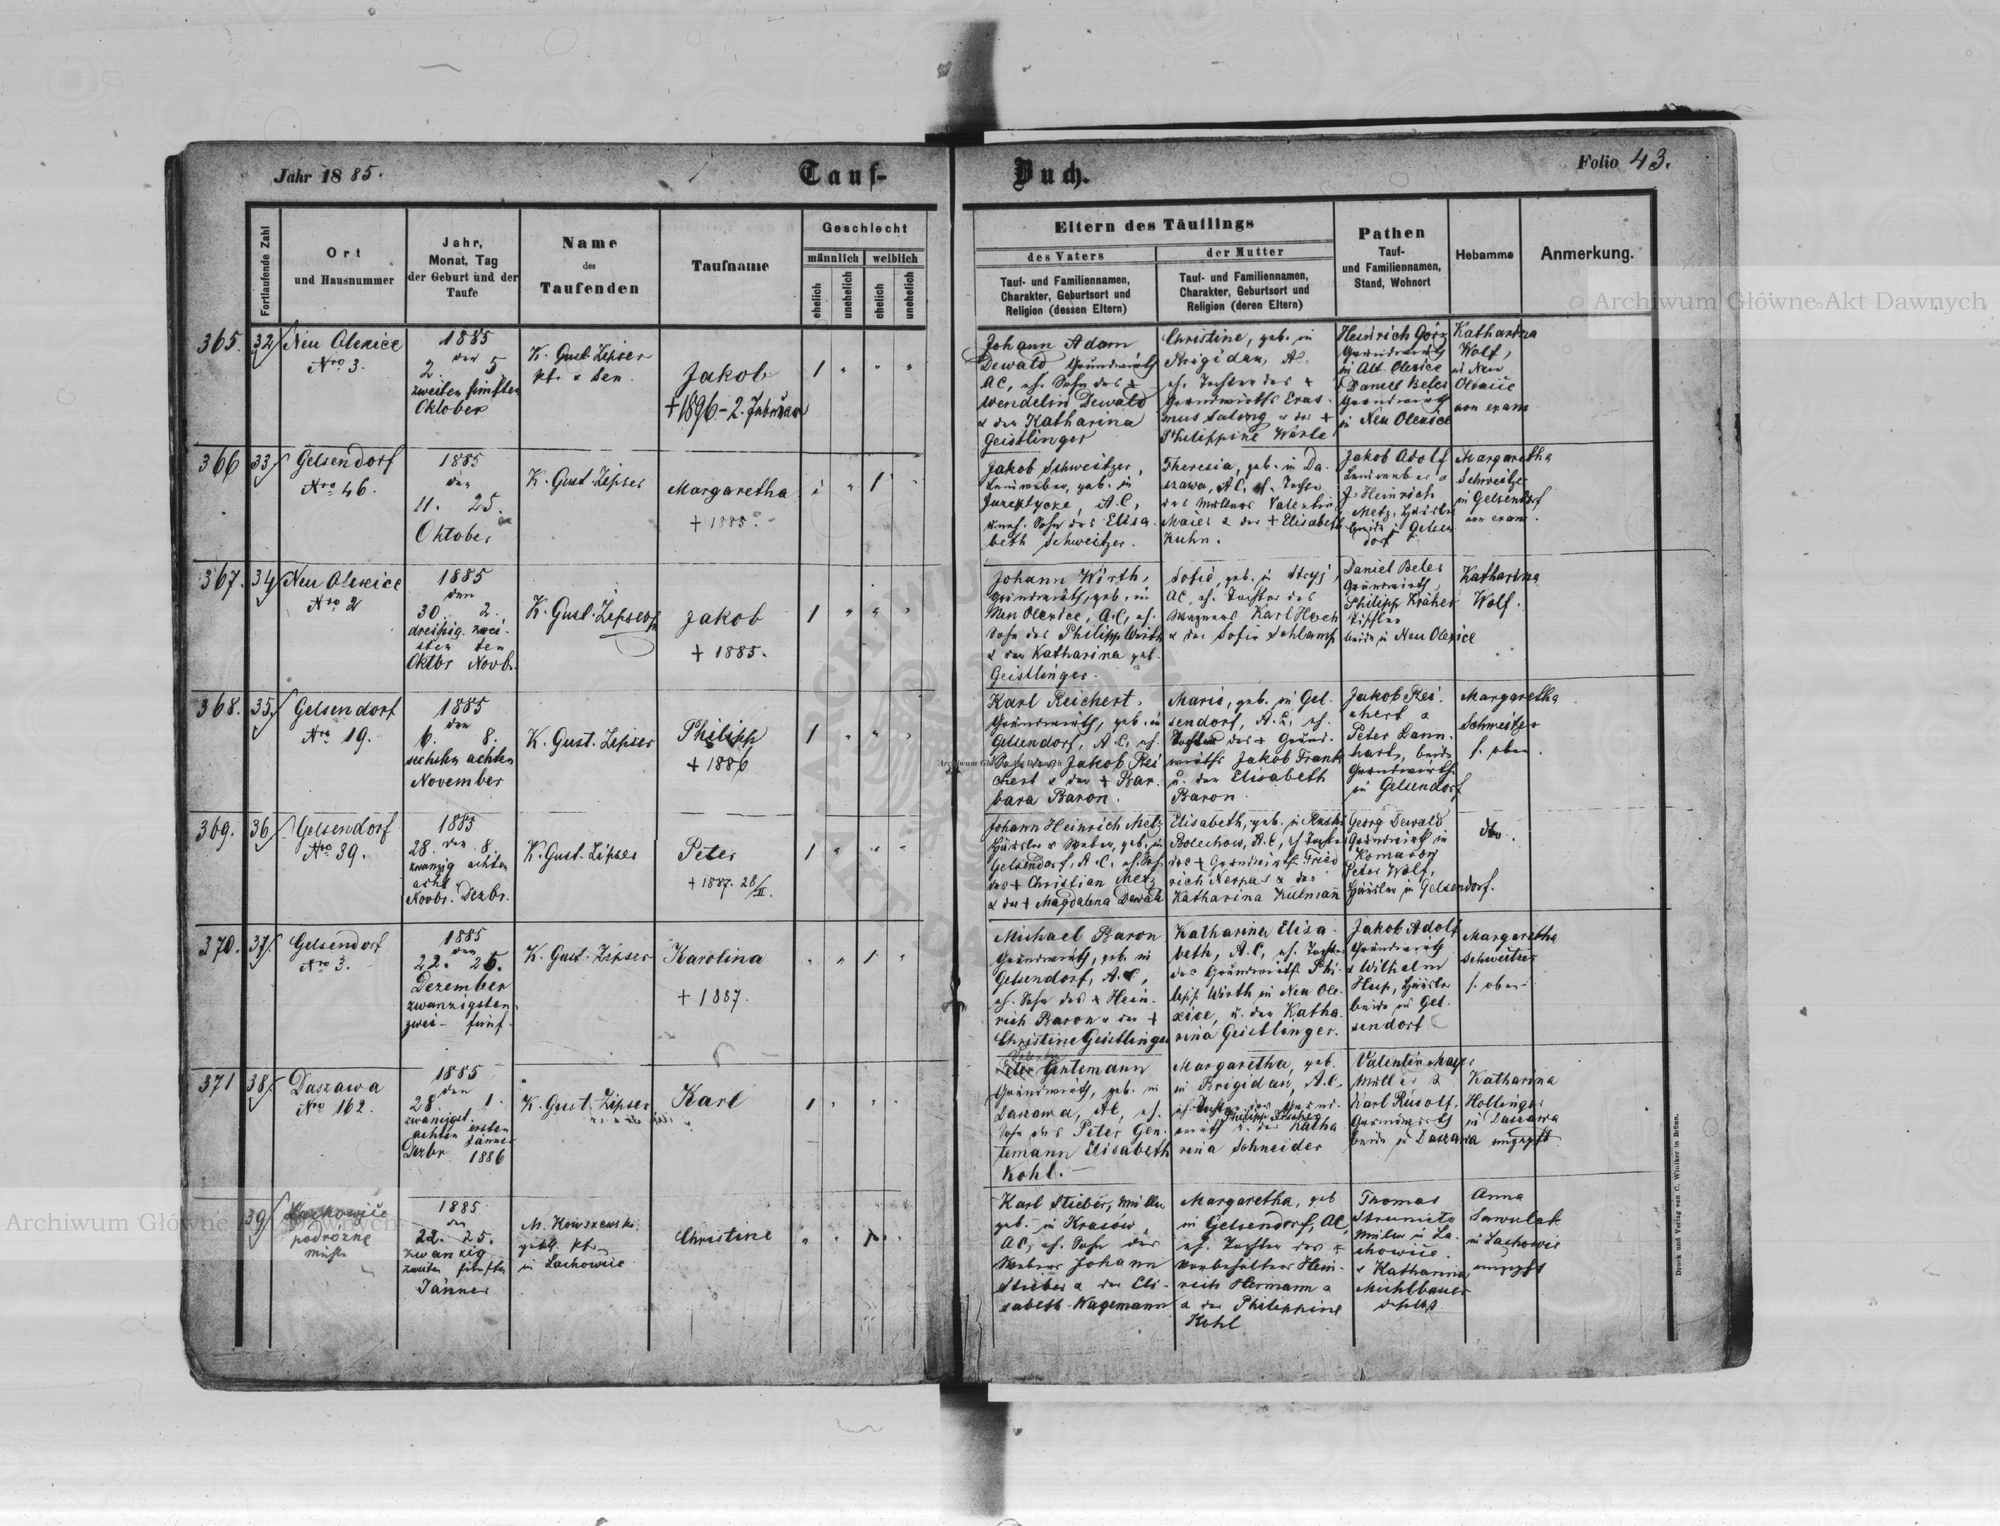 Jahr 1885.
Tauf-
Buch.
Folio 43.
Fortlaufende Zahl
Ort
und Hausnummer
Jahr,
Monat, Tag
der Geburt und der
Taufe
Name
des
Taufenden
Taufname
Geschlecht
männlich
weiblich
ehelich
unehelich
ehelich
unehelich
Eltern des Täuflings
des Vaters
der Mutter
Tauf- und Familiennamen,
Charakter, Geburtsort und
Religion (dessen Eltern)
Tauf- und Familiennamen,
Charakter, Geburtsort und
Religion (deren Eltern)
Pathen
Tauf-
und Familiennamen,
Stand, Wohnort
Hebamme
Anmerkung.
365. 32
Neu Olexice
Nro 3.
1885
den
2. 5.
zweiten fünften
Oktober
K. Gust. Zipser
Pf. u. Sen.
Jakob
+ 1896 - 2. Februar
1
Johann Adam
Dewald Grundwirth
AC, eh. Sohn des +
Wendelin Dewald
u der Katharina
Geistlinger
Christine, geb. in
Brigidau, AC.
eh. Tochter des +
Grundwirths Eras-
mus Salzng u der +
Philippine Wirle
Heinrich Görz
Grundwirth
in Alt Olexice
Daniel Beles
Grundwirth
in Neu Olexice
Katharina
Wolf,
in Neu
Olexice
non exam
366 33
Gelsendorf
Nro 46.
1885
den
11. 25.
Oktober
K. Gust. Zipser
Margaretha
+ 1885.
1
Jakob Schweitzer,
Leinweber, geb. in
A.C,
uneh. Sohn des Elisa-
beth Schweitzer.
Theresia, geb. in Da-
szawa, AC, eh. Tochter
des Müllers Valentin
Maier u der + Elisabeth
Kuhn.
Jakob Adolf
Leinweber u
J. Heinrich
Metz, Häusler
beide in Gelsen-
dorf
Margaretha
Schweitzer
in Gelsendorf
non exam.
367. 34
Neu Olexice
Nro 2
1885
den
30. 2.
dreißig- zwei-
sten ten
Oktbr Novb.
K. Gust. Zipser
Jakob
+ 1885.
1
Johann Wirth,
Grundwirth, geb. in
Neu Olexice, AC, eh.
Sohn des Philipp Wirth
u der Katharina geb.
Geistlinger.
Sofie, geb. in Stryj,
AC, eh. Tochter des
Wagners Karl Hoch
u der Sofie Schlamp
Daniel Beles
Grundwirth
Philipp Kräher
Tischler
beide in Neu Olexice
Katharina
Wolf.
368. 35.
Gelsendorf
Nro 19.
1885
den
6. 8.
sechsten achten
November
K. Gust. Zipser
Philipp
+ 1886
1
Karl Reichert.
Grundwirth, geb. in
Gelsendorf, A.C, eh.
Sohn des Jakob Rei
chert u der + Bar-
bara Baron.
Marie, geb. in Gel-
sendorf, A.C, eh.
Tochter des + Grund-
wirths Jakob Frank
u. der Elisabeth
Baron
Jakob Rei-
chert u
Peter Lann-
hart, beide
Grundwirthe
in Gelsendorf
Margaretha
Schweitzer
s. oben.
369. 36
Gelsendorf
Nro 39.
1885
28. den 8.
zwanzig achten
acht
Novbr. Dezbr.
K. Gust. Zipser
Peter
+ 1887. 28/II.
1
Johann Heinrich Metz
Häusler u Weber, geb. in
Gelsendorf, A.C, eh. Sohn
des + Christian Metz
u der + Magdalena Dewald
Elisabeth, geb. in Ruski
Bolechow, A.C, eh Tochter
des + Grundwirth Fried
rich Nerpas u der
Katharina Kulmann
Georg Dewald
Grundwirth in
Komarow
Peter Wolf,
Häusler in Gelsendorf.
dto.
370. 37.
Gelsendorf
Nro 3.
1885
den
22. 25.
Dezember
zwanzigsten
zwei- fünf-
K. Gust. Zipser
Karolina
+ 1887.
1
Michael Baron
Grundwirth, geb. in
Gelsendorf, A.C,
eh. Sohn des + Hein-
rich Baron u der +
Christine Geistlinger
Katharina Elisa-
beth, A.C, eh. Tochter
des Grundwirth Phi-
lipp Wirth in Neu Ole-
xice, u. der Katha-
rina Geistlinger.
Jakob Adolf
Grundwirth
u Wilhelm
Heup, Häusler
beide in Gel-
sendorf
Margaretha
Schweitzer
s. oben.
371 38
Daszawa
Nro 162.
1885
den
28. 1.
zwanzigst. ersten
achten Jänner
Dezbr 1886
K. Gust. Zipser
Karl
1
Peter Gentemann
Grundwirth, geb. in
Daszawa, AC, eh.
Sohn des Peter Gen-
temann Elisabeth
Kohl.
Margaretha, geb.
in Brigidau, A.C,
eh. Tochter des Grund-
wirth Philipp
u. der Katha
rina Schneider
Valentin Mayer
Müller &
Karl Rudolf,
Grundwirth
beide in Daszawa
Katharina
Hollinger
in Daszawa
ungepft.
39
Lachowice
podrozne
Mühle
1885
den
22. 25.
zwanzig
zweiten fünften
Jänner
M. Kowszewski
gr. kth. Pf.
in Lachowice
Christine
1
Karl Stieber, Müller
geb. in Krasów,
AC, eh. Sohn des
Webers Johann
Stieber u der Eli-
sabeth Wagemann
Margaretha, geb
in Gelsendorf, AC,
eh. Tochter des +
Vorbehalters Hein-
reich Hermann u
u der Philippine
Kohl
Thomas
Strumilo
Müller in La-
chowice.
u Katharina
Michlbauer
deselbst
Anna
Lawulak
in Lachowice
ungepft
Druck und Verlag von C. Winiker in Brünn.
Archiwum Główne Akt Dawnych
Archiwum Główne Akt Dawnych
Archiwum Główne Akt Dawnych